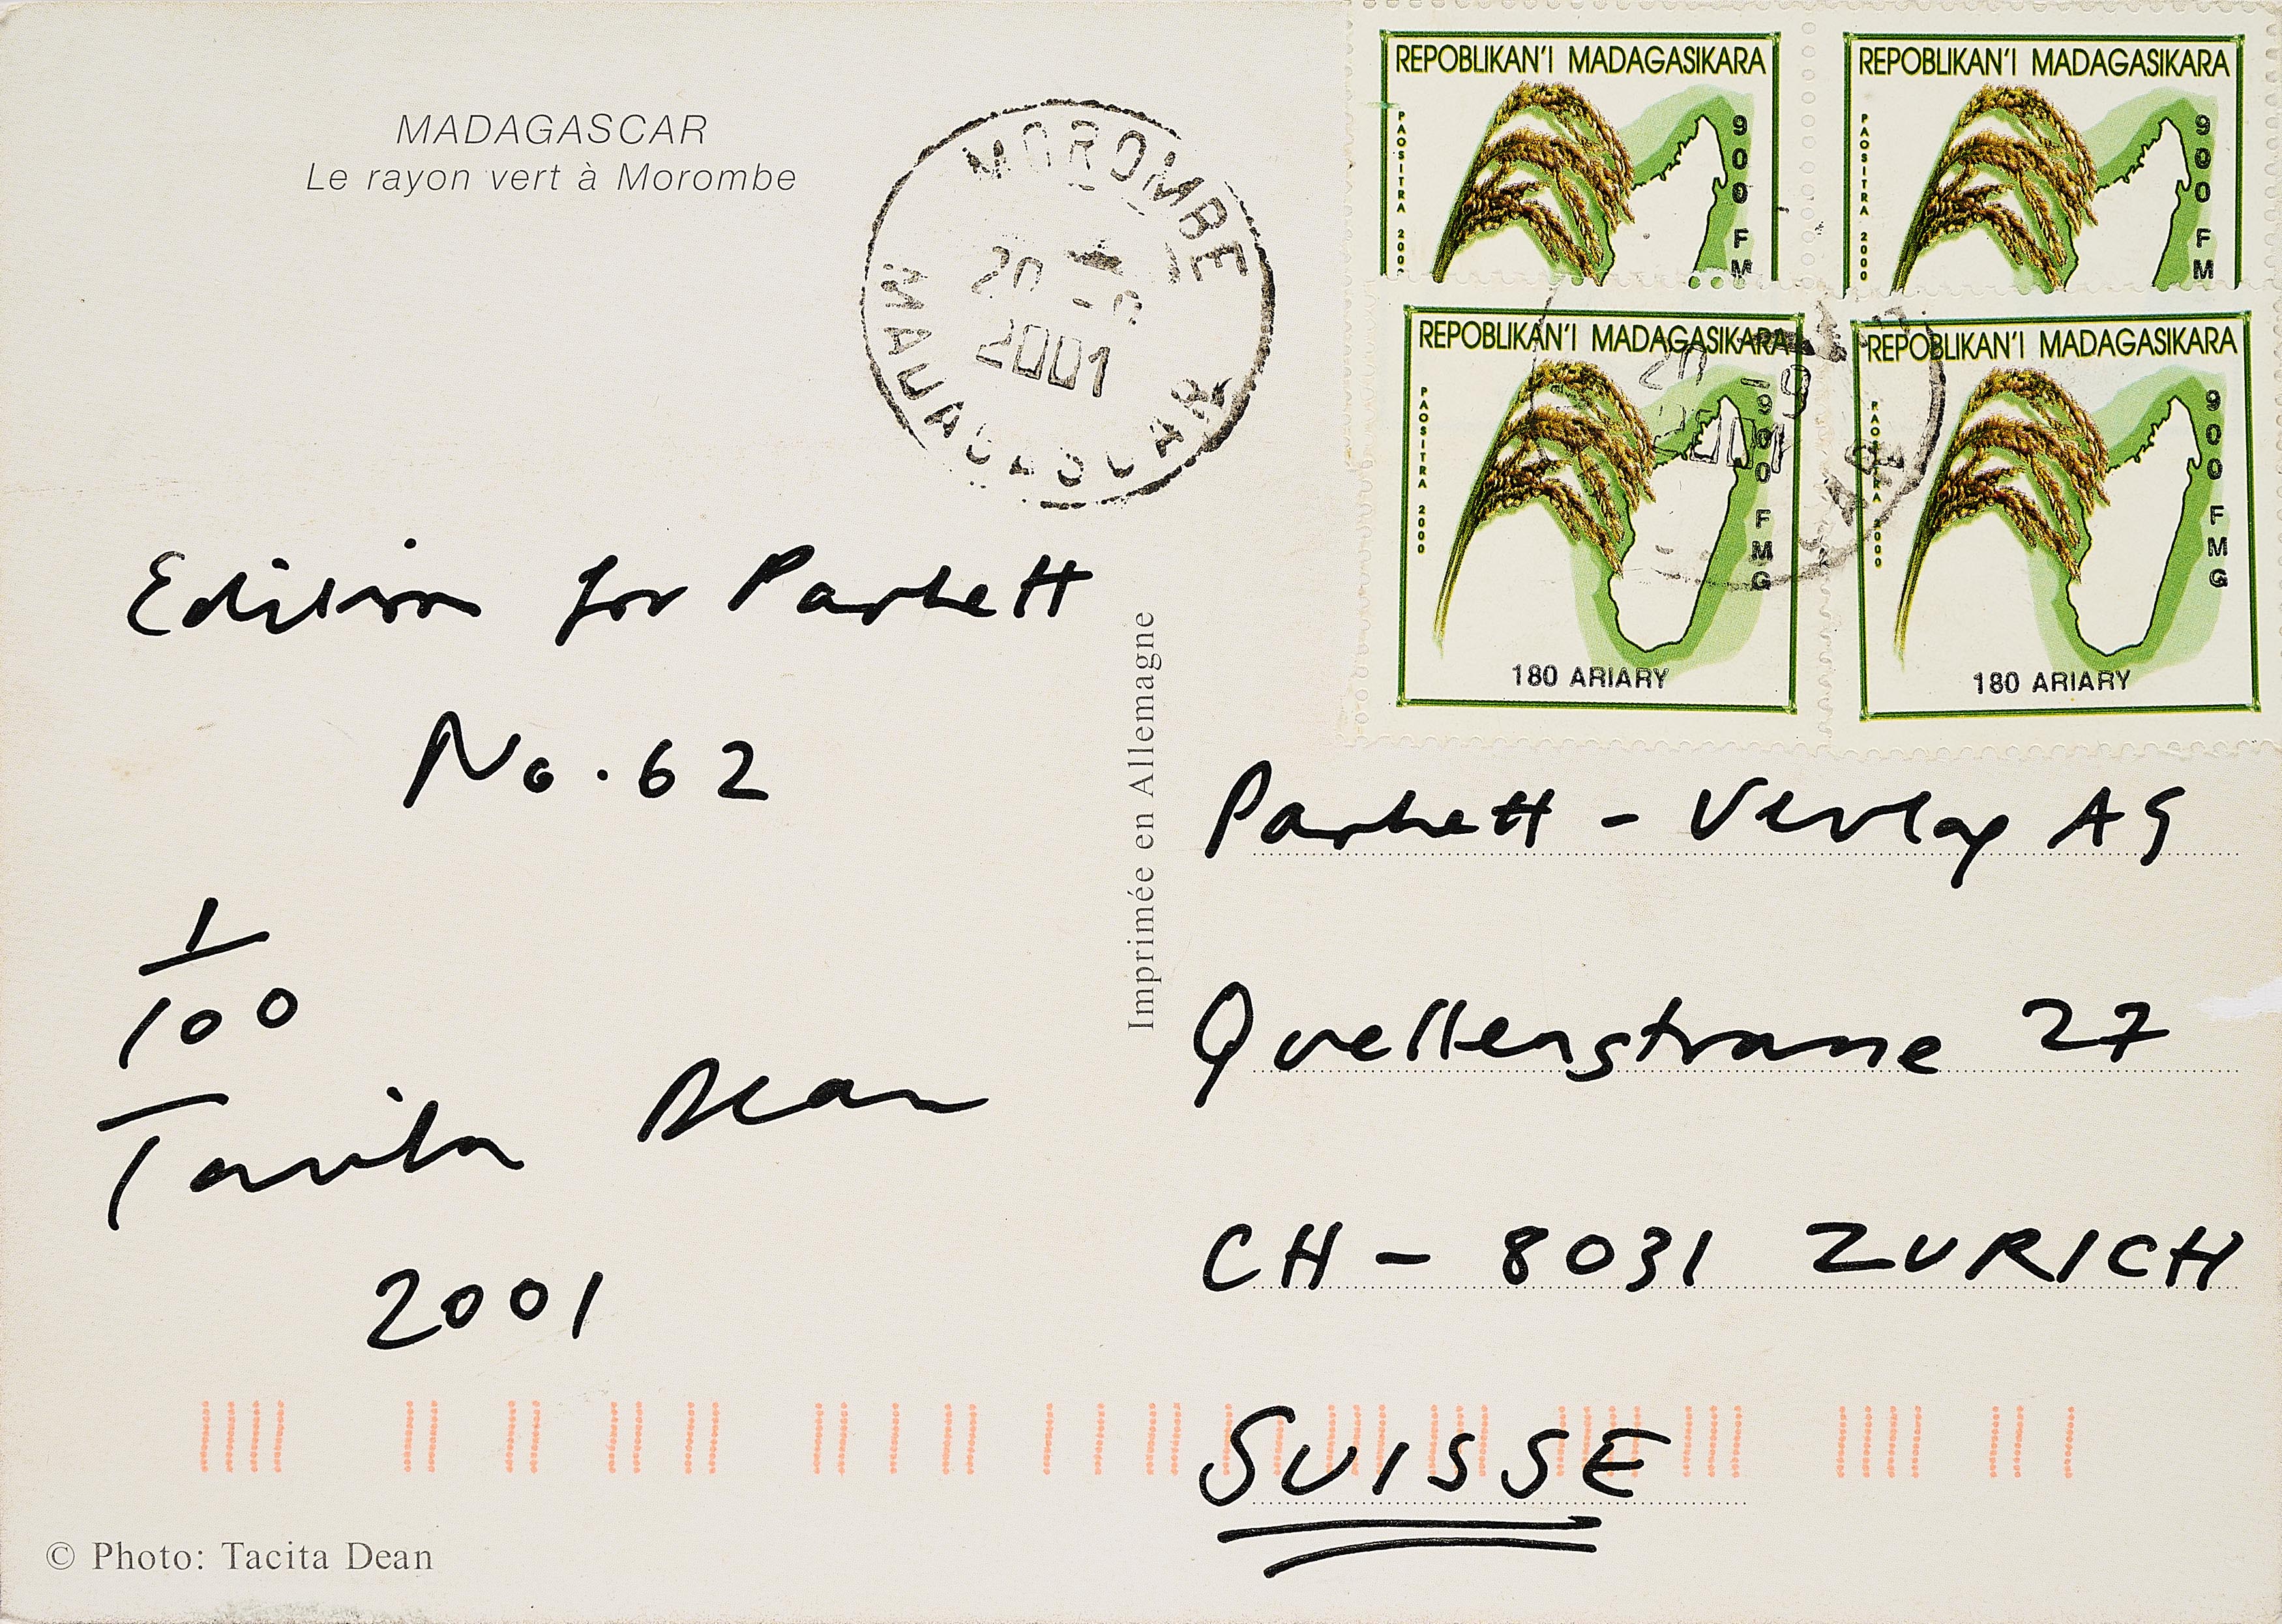 MADAGASCAR
Le rayon vert à Morombe
MOROMBE
20 - 9
2001
MADAGASCAR
REPOBLIKAN'I MADAGASIKARA
PAOSITRA 200
900 FM
REPOBLIKAN'I MADAGASIKARA
PAOSITRA 2000
900 FM
REPOBLIKAN'I MADAGASIKARA
PAOSITRA 2000
900 FMG
180 ARIARY
REPOBLIKAN'I MADAGASIKARA
PAOSITRA 2000
900 FMG
180 ARIARY
20 - 9
2001
AR
Edition for Parkett
No. 62
1
100
Tacita Dean
2001
Imprimée en Allemagne
Parkett - Verlag AG
Quellenstrasse 27
CH - 8031 ZURICH
SUISSE
© Photo: Tacita Dean